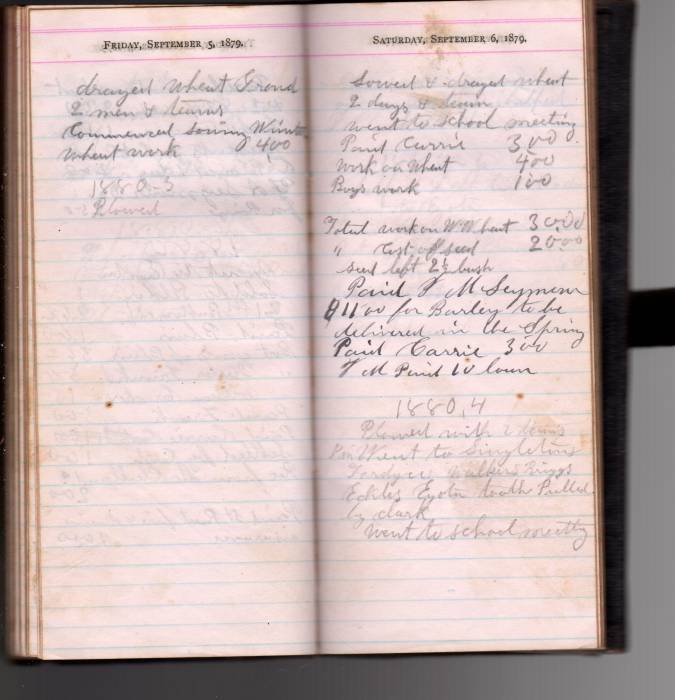 FRIDAY, SEPTEMBER 5, 1879.
drayed wheat Grond
2 men & teams
Commenced sowing Winter
wheat work 400
1880-3
Plowed
SATURDAY, SEPTEMBER 6, 1879.
Sowed & drayed wheat
2 days & team
went to school meeting
Paid Carrie 300
Work on Wheat 400
Boys work 100
Total work on W Wheat 3000
" Cost of seed 2000
seed left 2½ bush
Paid V M Seymour
$1100 for Barley to be
delivered in the Spring
Paid Carrie 300
V M Paid 10
1880,4
Plowed with 2 teams
Went to Singletons
Walkers Briggs
Eckles tooth Pulled
by clark
Went to school meeting